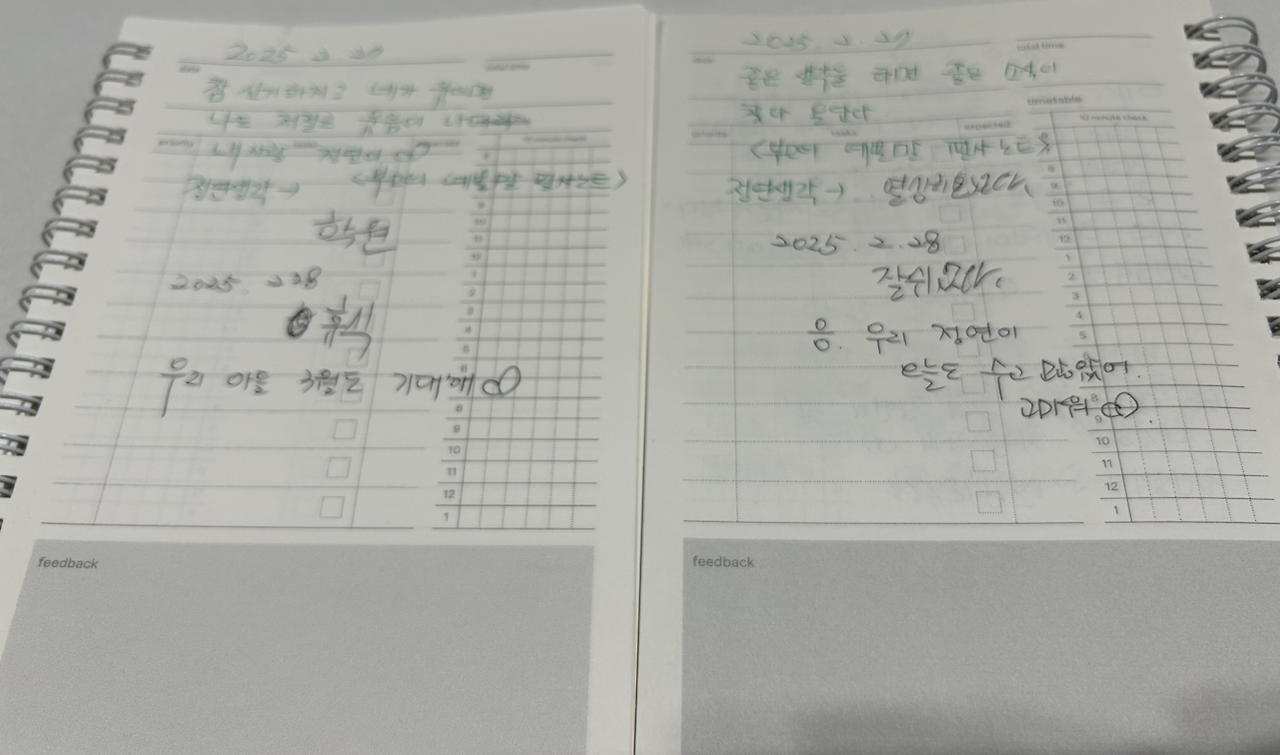 2025. 2. 27
date
total time
참 신기하지? 네가 웃으면
나도 저절로 웃음이 나
priority
내 사랑 정연이
정연생각→ <부모의 예쁜 말 필사노트>
학원
2025. 2 28
휴식
우리 아들 3월도 기대해
8
9
10
11
12
1
feedback
2025. 2. 27
date
total time
좋은 생각을 하면 좋은 일이
timetable
priority
tasks
expected
10 minute check
<부모의 예쁜 말 필사노트>
정연생각→
2025. 2. 28
잘쉬었다.
응. 우리 정연이
오늘도 수고 많았어.
고마워
8
9
10
11
12
1
2
3
4
5
8
9
10
11
12
1
feedback